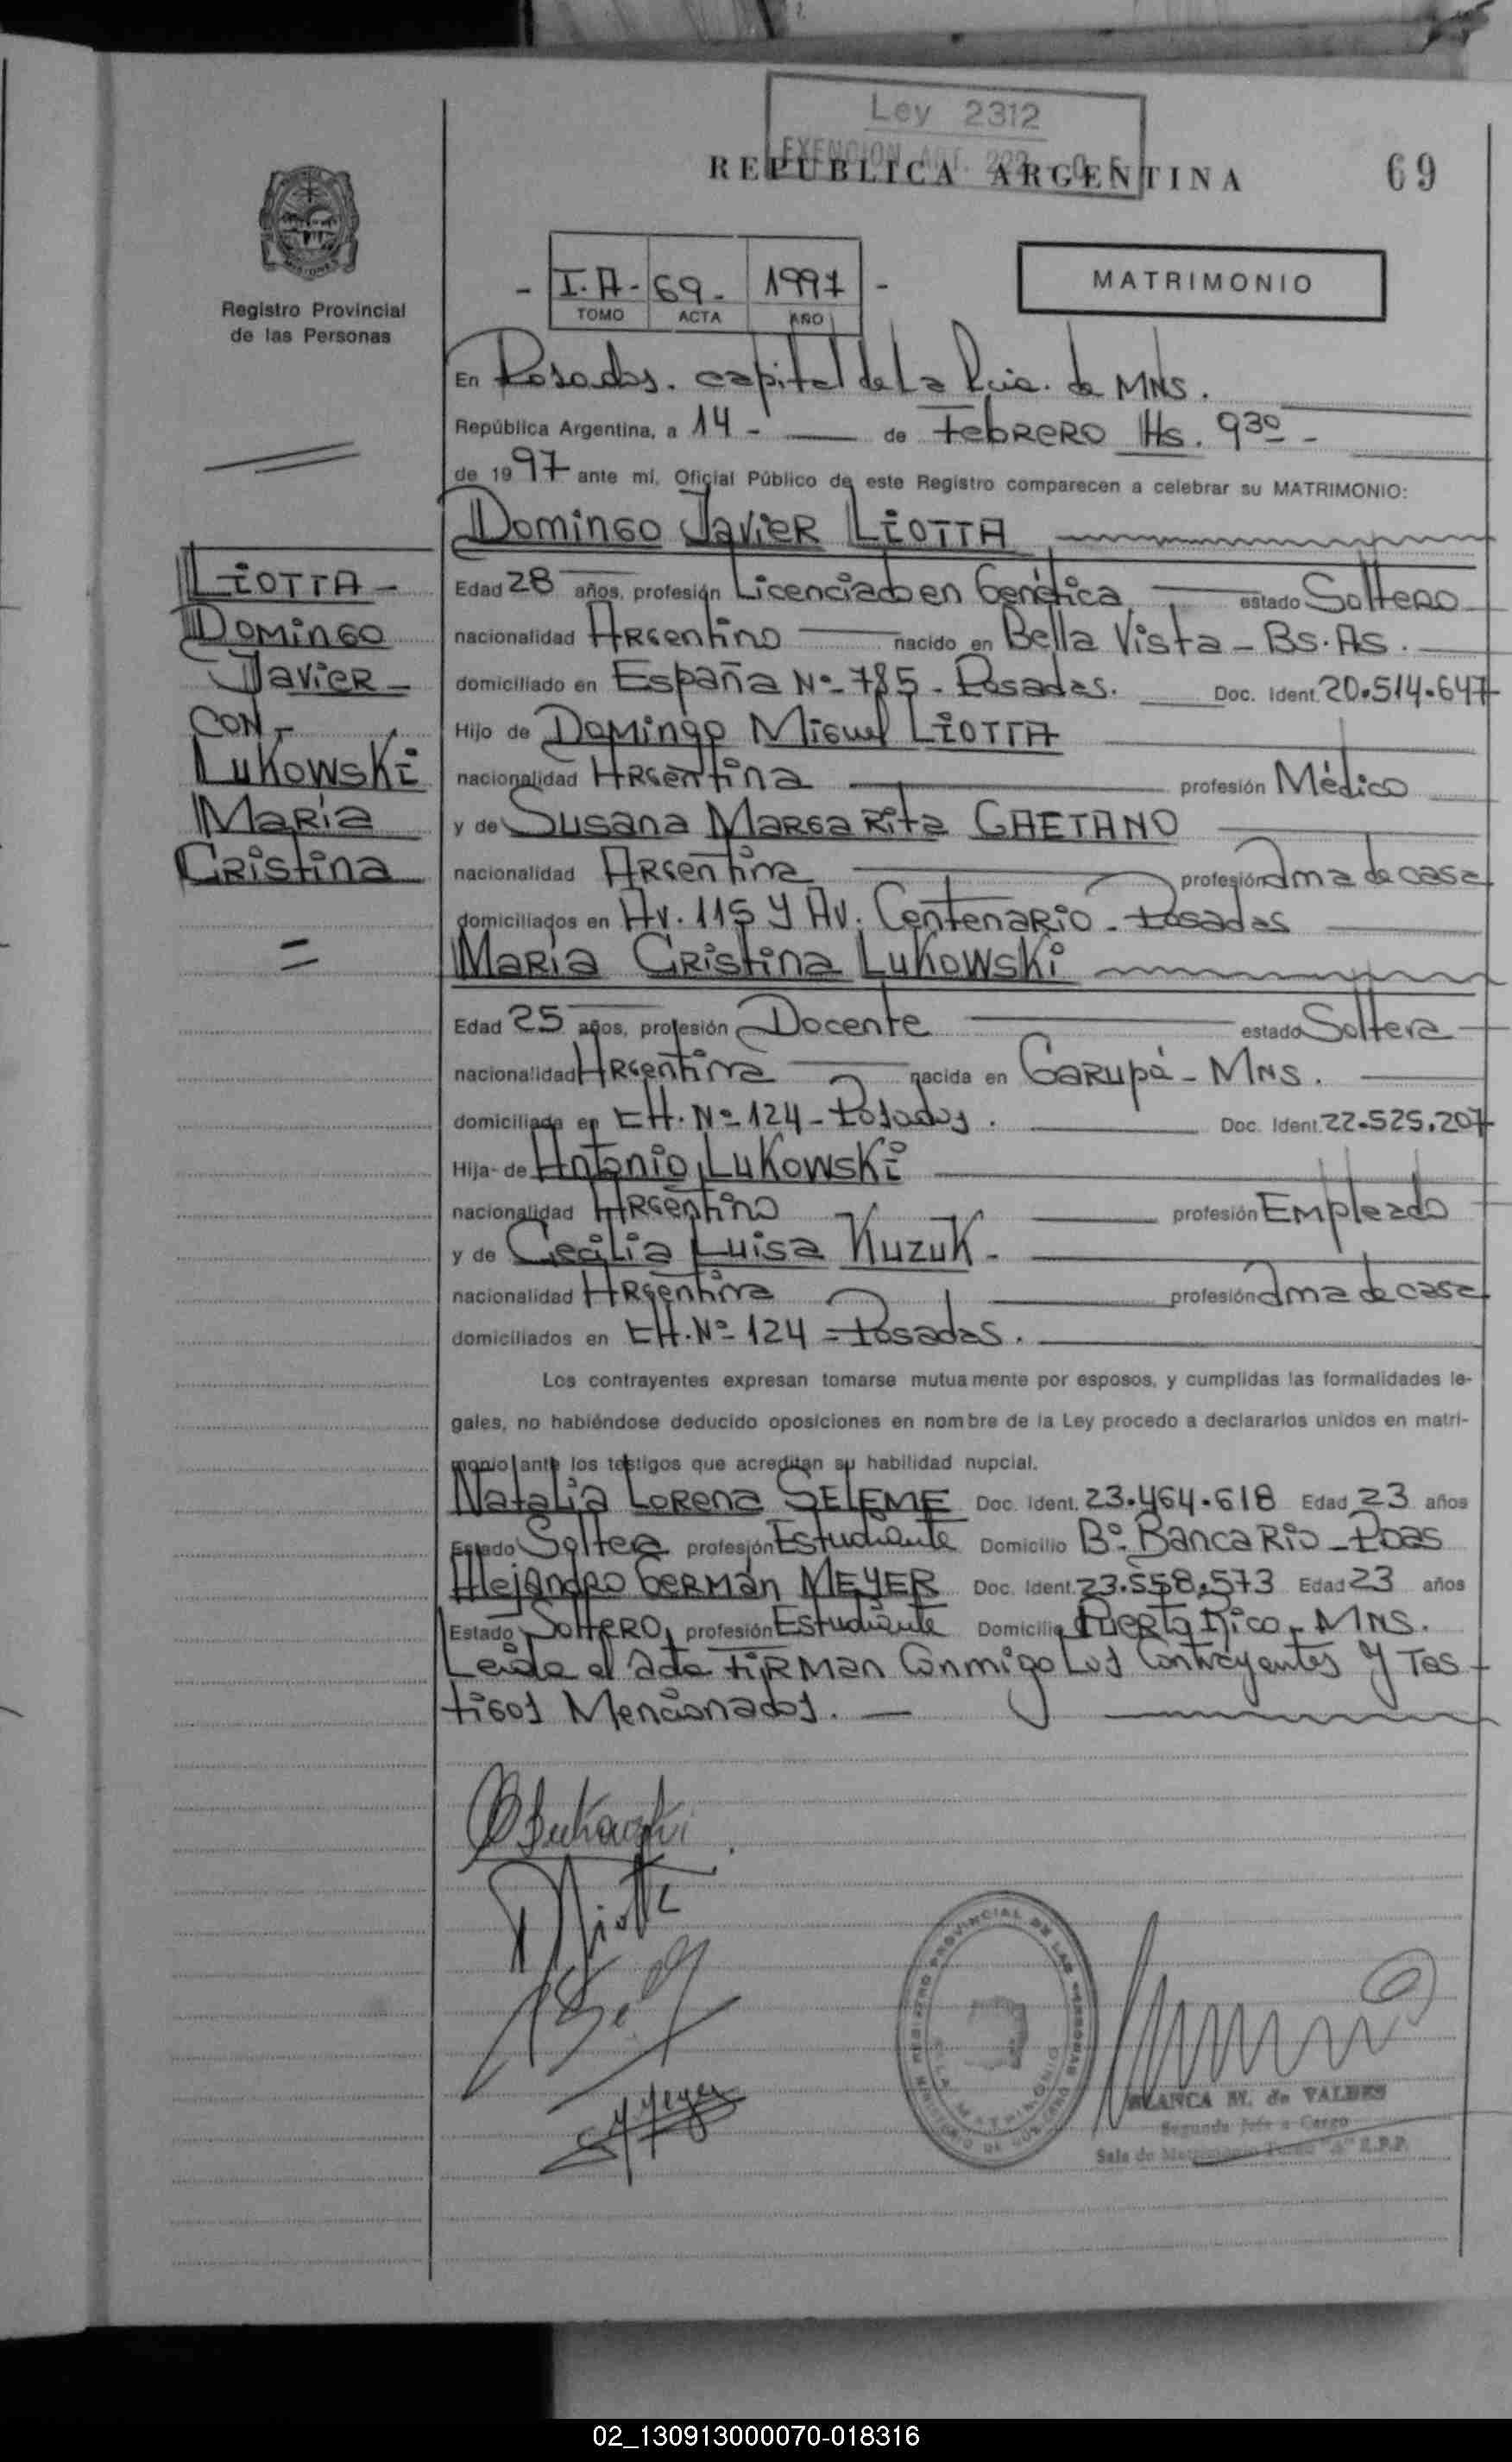 Ley 2312
REPUBLICA ARGENTINA
69
I.A- 69- 1997
TOMO ACTA AÑO
MATRIMONIO
Registro Provincial
de las Personas
En Posadas. capital de La Pcia. de MNS.
República Argentina, a 14 - de Febrero Hs. 9 30 -
de 1997 ante mí, Oficial Público de este Registro comparecen a celebrar su MATRIMONIO:
Domingo Javier LIOTTA
LIOTTA -
Domingo
Javier -
CON -
Lukowski
María
Cristina
Edad 28 años, profesión Licenciado en Genética estado Soltero
nacionalidad Argentino nacido en Bella Vista - Bs. As.
domiciliado en España Nº 785 - Posadas. Doc. Ident. 20.514.647
Hijo de Domingo Miguel LIOTTA
nacionalidad Argentina profesión Médico
y de Susana Margarita GAETANO
nacionalidad Argentina profesión Ama de casa
domiciliados en Av. 115 y Av. Centenario - Posadas
María Cristina Lukowski
Edad 25 años, profesión Docente estado Soltera
nacionalidad Argentina nacida en Garupá - MNS.
domiciliada en CH. Nº 124 - Posadas. Doc. Ident. 22.525.207
Hija de Antonio Lukowski
nacionalidad Argentino profesión Empleado
y de Cecilia Luisa Kuzuk -
nacionalidad Argentina profesión Ama de casa
domiciliados en CH. Nº 124 = Posadas.
Los contrayentes expresan tomarse mutuamente por esposos, y cumplidas las formalidades le-
gales, no habiéndose deducido oposiciones en nombre de la Ley procedo a declararlos unidos en matri-
monio ante los testigos que acreditan su habilidad nupcial.
Natalia Lorena SELEME Doc. Ident. 23.464.618 Edad 23 años
Estado Soltera profesión Estudiante Domicilio Bº Bancario - Pdas
Alejandro Germán MEYER Doc. Ident. 23.558.573 Edad 23 años
Estado Soltero, profesión Estudiante Domicilio Puerto Rico - MNS.
Leída el acta firman Conmigo Los Contrayentes y Tes-
tigos Mencionados.
Lukowski
Liotta
Meyer
REGISTRO PROVINCIAL DE LAS PERSONAS
MINISTERIO DE GOBIERNO
SALA MATRIMONIO
BLANCA M. de VALDES
Segunda Jefe a Cargo
Sala de Matrimonio Turno "A" R.P.P.
02_130913000070-018316